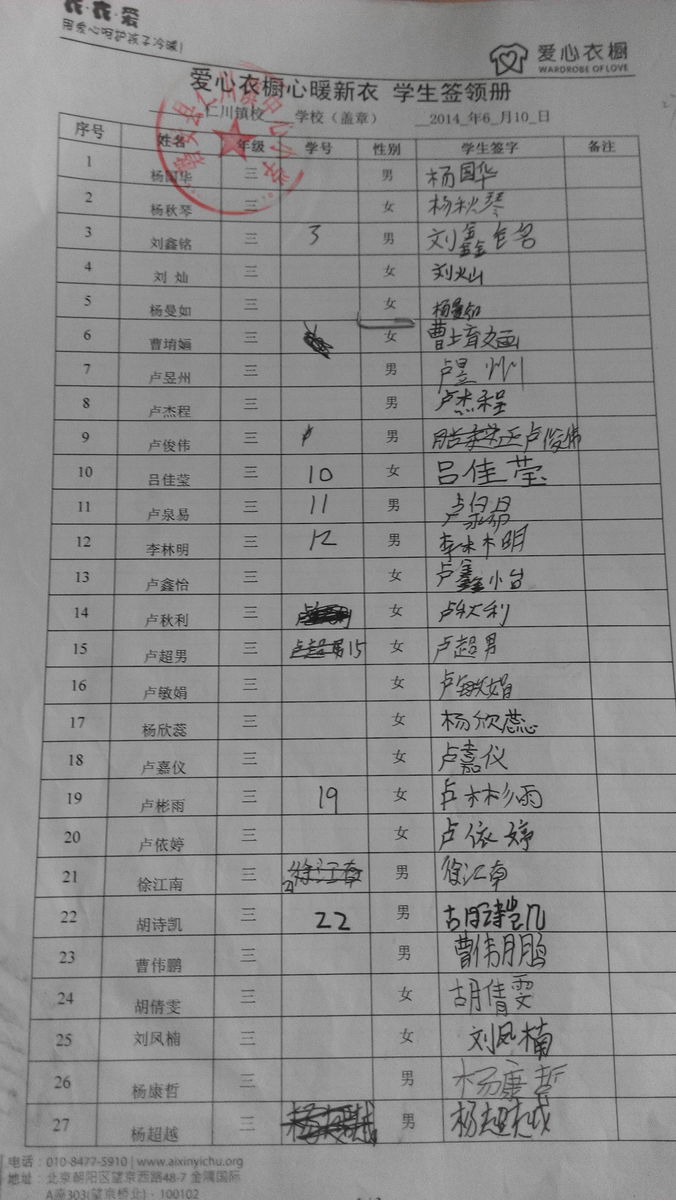 衣·衣·爱
用爱心呵护孩子冷暖!
爱心衣橱
WARDROBE OF LOVE
爱心衣橱心暖新衣 学生签领册
仁川镇校 学校（盖章） 2014_年6_月10_日
序号 姓名 年级 学号 性别 学生签字 备注
1 杨国华 三 男 杨国华
2 杨秋琴 三 女 杨秋琴
3 刘鑫铭 三 3 男 刘鑫铭
4 刘灿 三 女 刘灿
5 杨曼如 三 女 杨曼如
6 曹堉婳 三 女 曹堉婳
7 卢昱州 三 男 卢昱州
8 卢杰程 三 男 卢杰程
9 卢俊伟 三 男 卢俊伟
10 吕佳莹 三 10 女 吕佳莹
11 卢泉易 三 11 男 卢泉易
12 李林明 三 12 男 李林明
13 卢鑫怡 三 女 卢鑫怡
14 卢秋利 三 女 卢秋利
15 卢超男 三 卢超男15 女 卢超男
16 卢敏娟 三 女 卢敏娟
17 杨欣蕊 三 女 杨欣蕊
18 卢嘉仪 三 女 卢嘉仪
19 卢彬雨 三 19 女 卢彬雨
20 卢依婷 三 女 卢依婷
21 徐江南 三 21 男 徐江南
22 胡诗凯 三 22 男 胡诗凯
23 曹伟鹏 三 男 曹伟鹏
24 胡倩雯 三 女 胡倩雯
25 刘凤楠 三 女 刘凤楠
26 杨康哲 三 男 杨康哲
27 杨超越 三 男 杨超越
电话：010-8477-5910 | www.aixinyichu.org
地址：北京朝阳区望京西路48-7 金隅国际
A座303(望京桥北)·100102